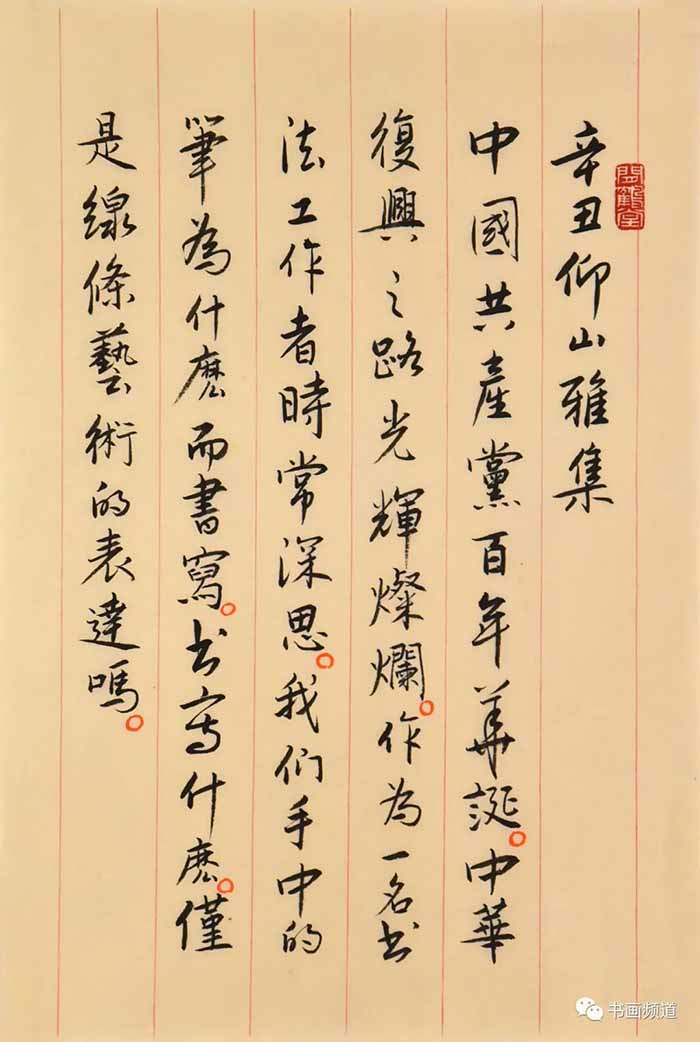 辛丑仰山雅集
中國共產黨百年華誕。中華
復興之路光輝燦爛。作為一名书
法工作者時常深思。我们手中的
筆為什麽而書寫。书写什麽。僅
是線條藝術的表達嗎。
书画频道